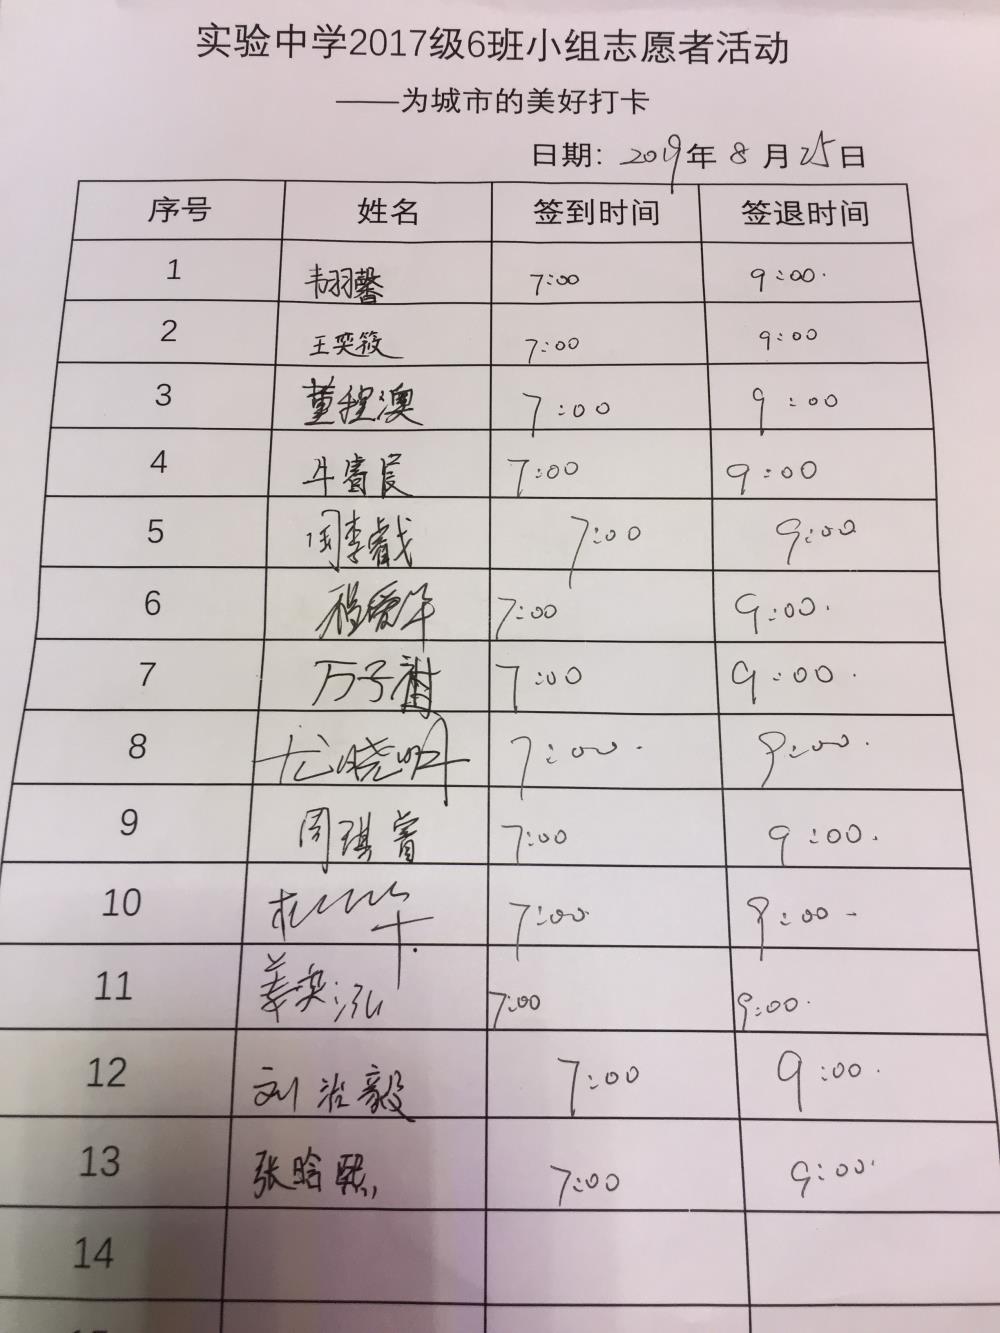 实验中学2017级6班小组志愿者活动
——为城市的美好打卡
日期: 2019年8月25日
序号 姓名 签到时间 签退时间
1 韦羽馨 7:00 9:00
2 王奕筱 7:00 9:00
3 董程澳 7:00 9:00
4 牛睿宸 7:00 9:00
5 李睿 7:00 9:00
6 7:00 9:00
7 万子 7:00 9:00
8 尤晓 7:00 9:00
9 周琪睿 7:00 9:00
10 7:00 9:00
11 姜奕泓 7:00 9:00
12 刘治毅 7:00 9:00
13 张晗熙 7:00 9:00
14